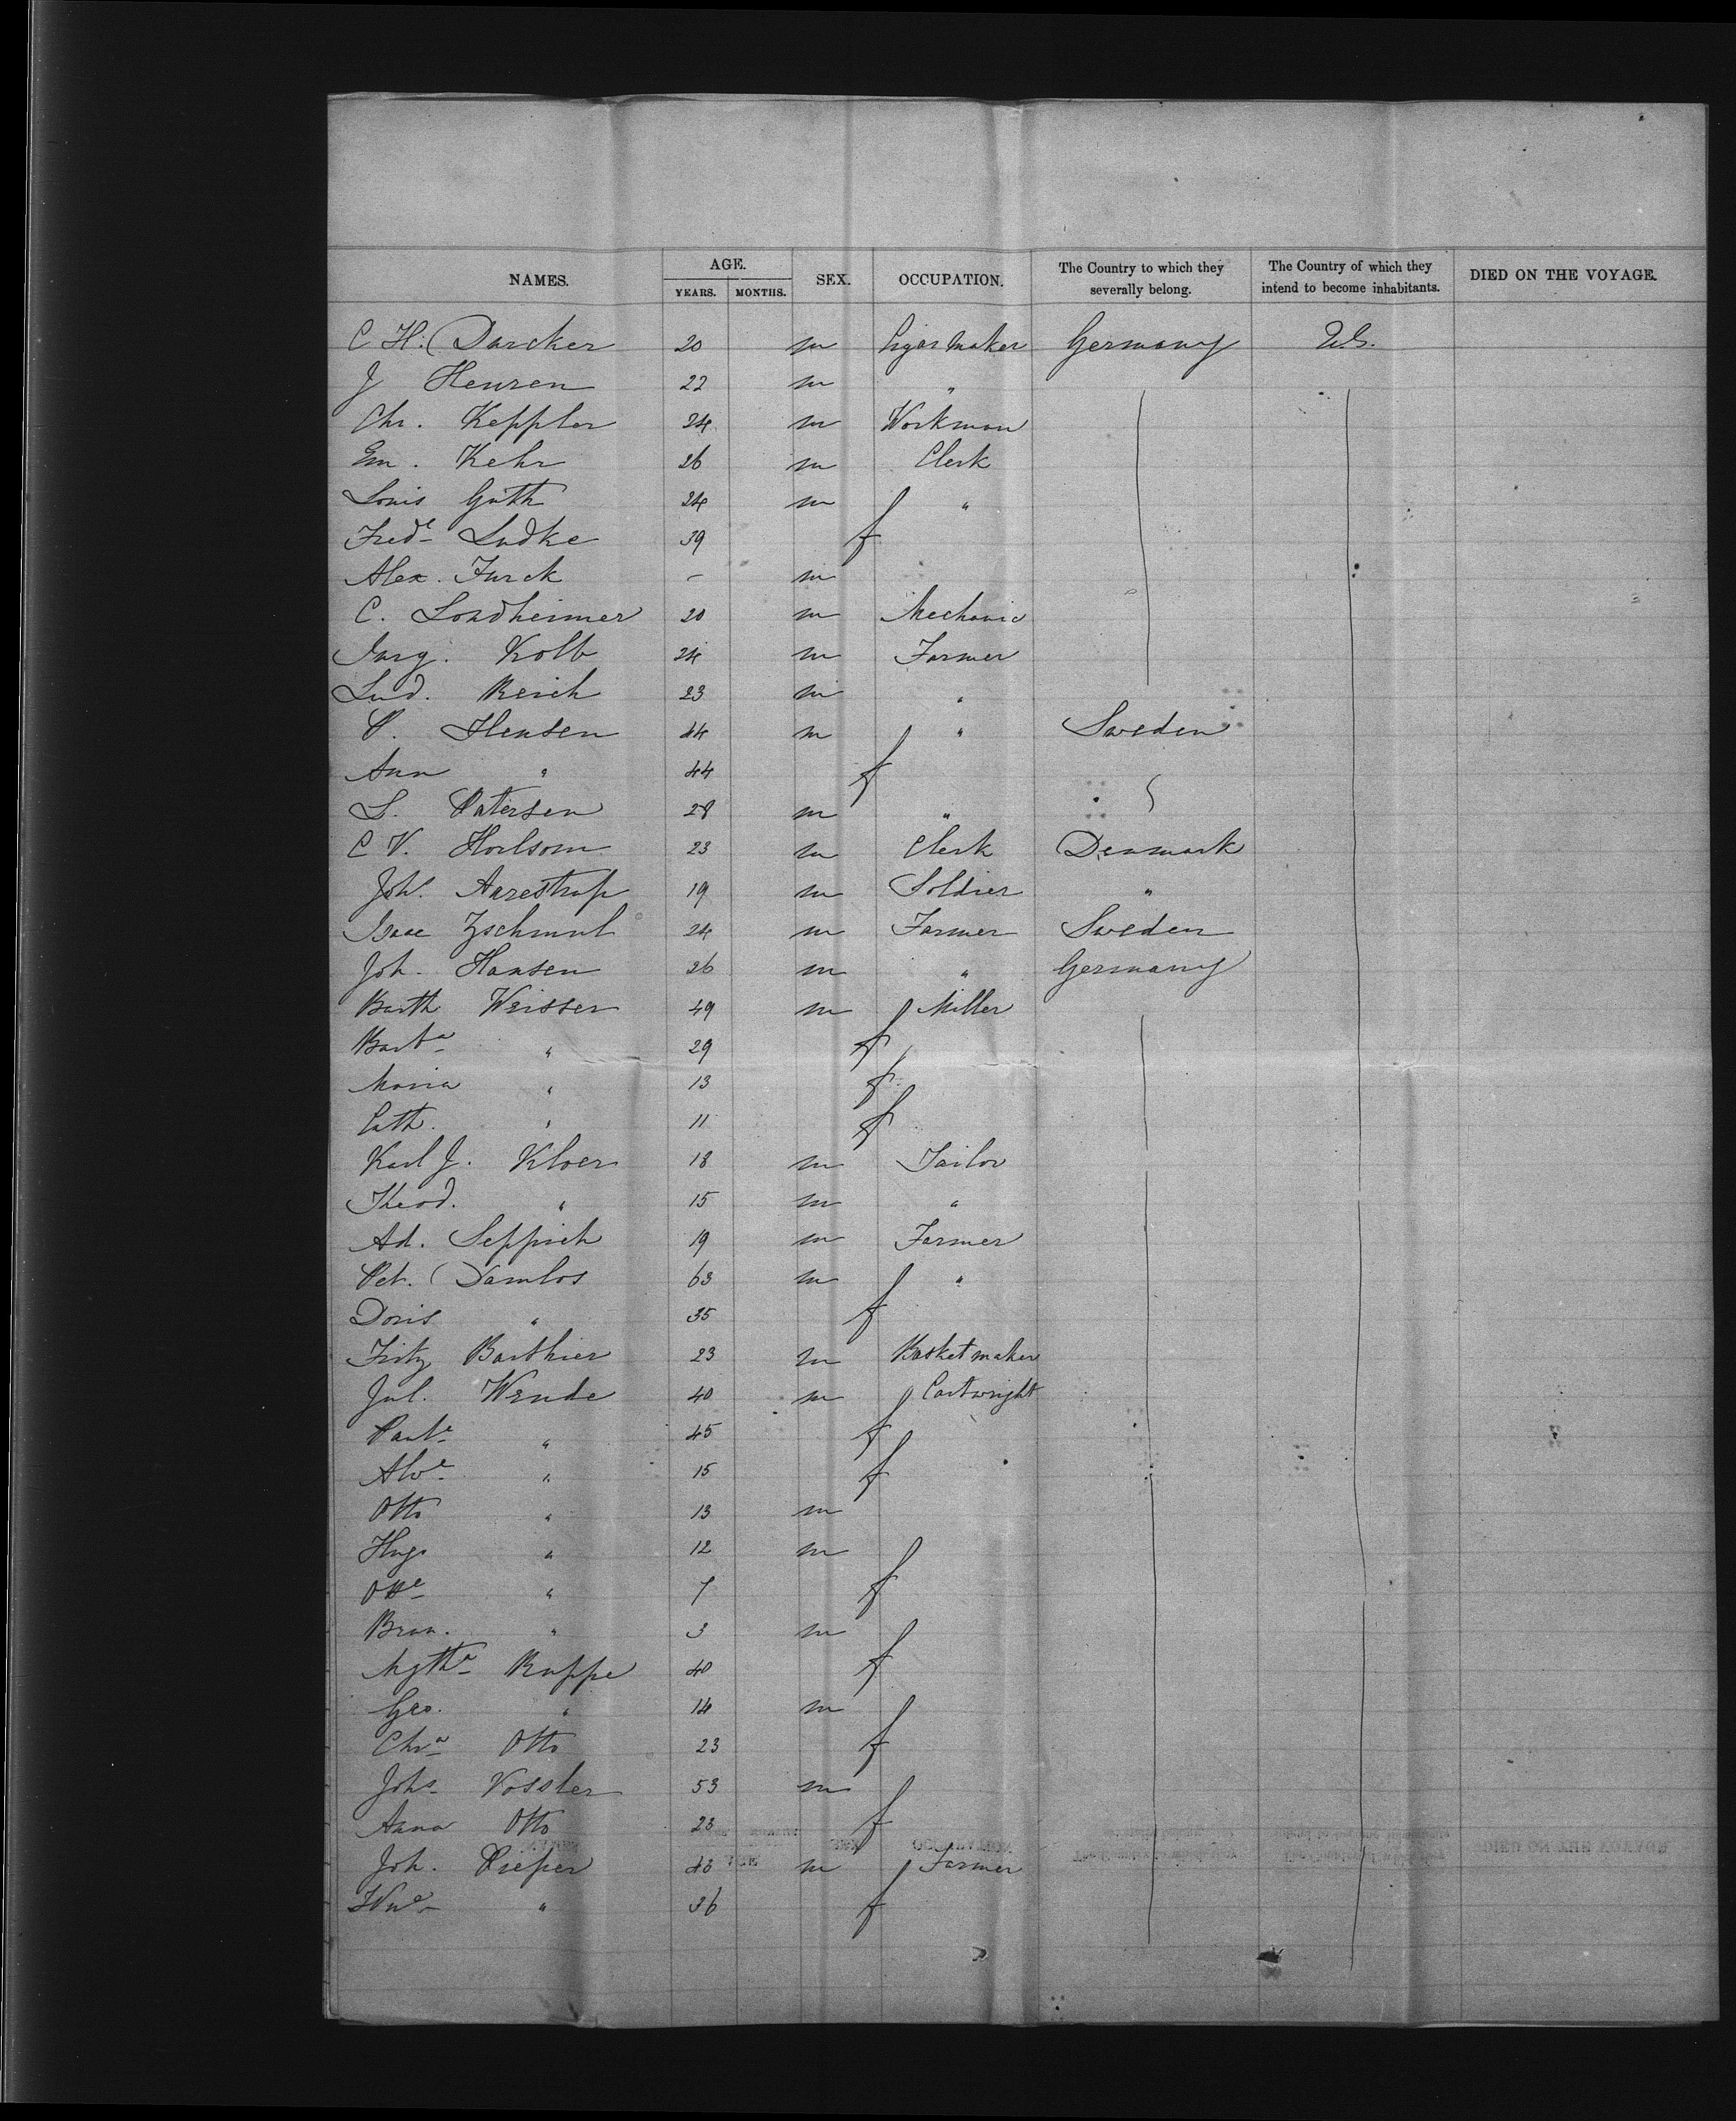 NAMES. AGE. YEARS. MONTHS. SEX. OCCUPATION. The Country to which they severally belong. The Country of which they intend to become inhabitants. DIED ON THE VOYAGE.
C H. Darcker 20 m Cigar maker Germany U.S.
J Hensen 22 m "
Chr. Keppler 24 m Workman
Em. Kehr 26 m Clerk
Louis Guth 24 m "
Fredᵉ Ludke 39 f
Alex. Furck – m
C. Lordheimer 20 m Mechanic
Jurg. Kolb 24 m Farmer
Lud. Reich 23 m "
P. Hensen 44 m " Sweden
Ann " 44 f
L. Patersen 28 m "
C V. Horlsom 23 m Clerk Denmark
Joh. Aarestrup 19 m Soldier "
Isaac 24 m Farmer Sweden
Joh. Hansen 26 m " Germany
Barth Weisser 49 m Miller
Barbᵃ " 29 f
Maria " 13 f
Cath. " 11 f
Karl J. Kloer 18 m Tailor
Theod. " 15 m "
Ad. Seppich 19 m Farmer
Pet. Damlos 63 m "
Doris " 35 f
Fritz Barthier 23 m Basketmaker
Jul. Wende 40 m Cartwright
" 45 f
Alvᵉ " 15 f
Otto " 13 m
Hugo " 12 m
Ottᵉ " 7 f
Brun. " 3 m
Mgthᵃ Ruppe 40 f
Geo. " 14 m
Chrᵃ Otto 23 f
Johs Vossler 53 m
Anna Otto 23 f
Joh. Pieper 43 m Farmer
Wmᵉ " 36 f